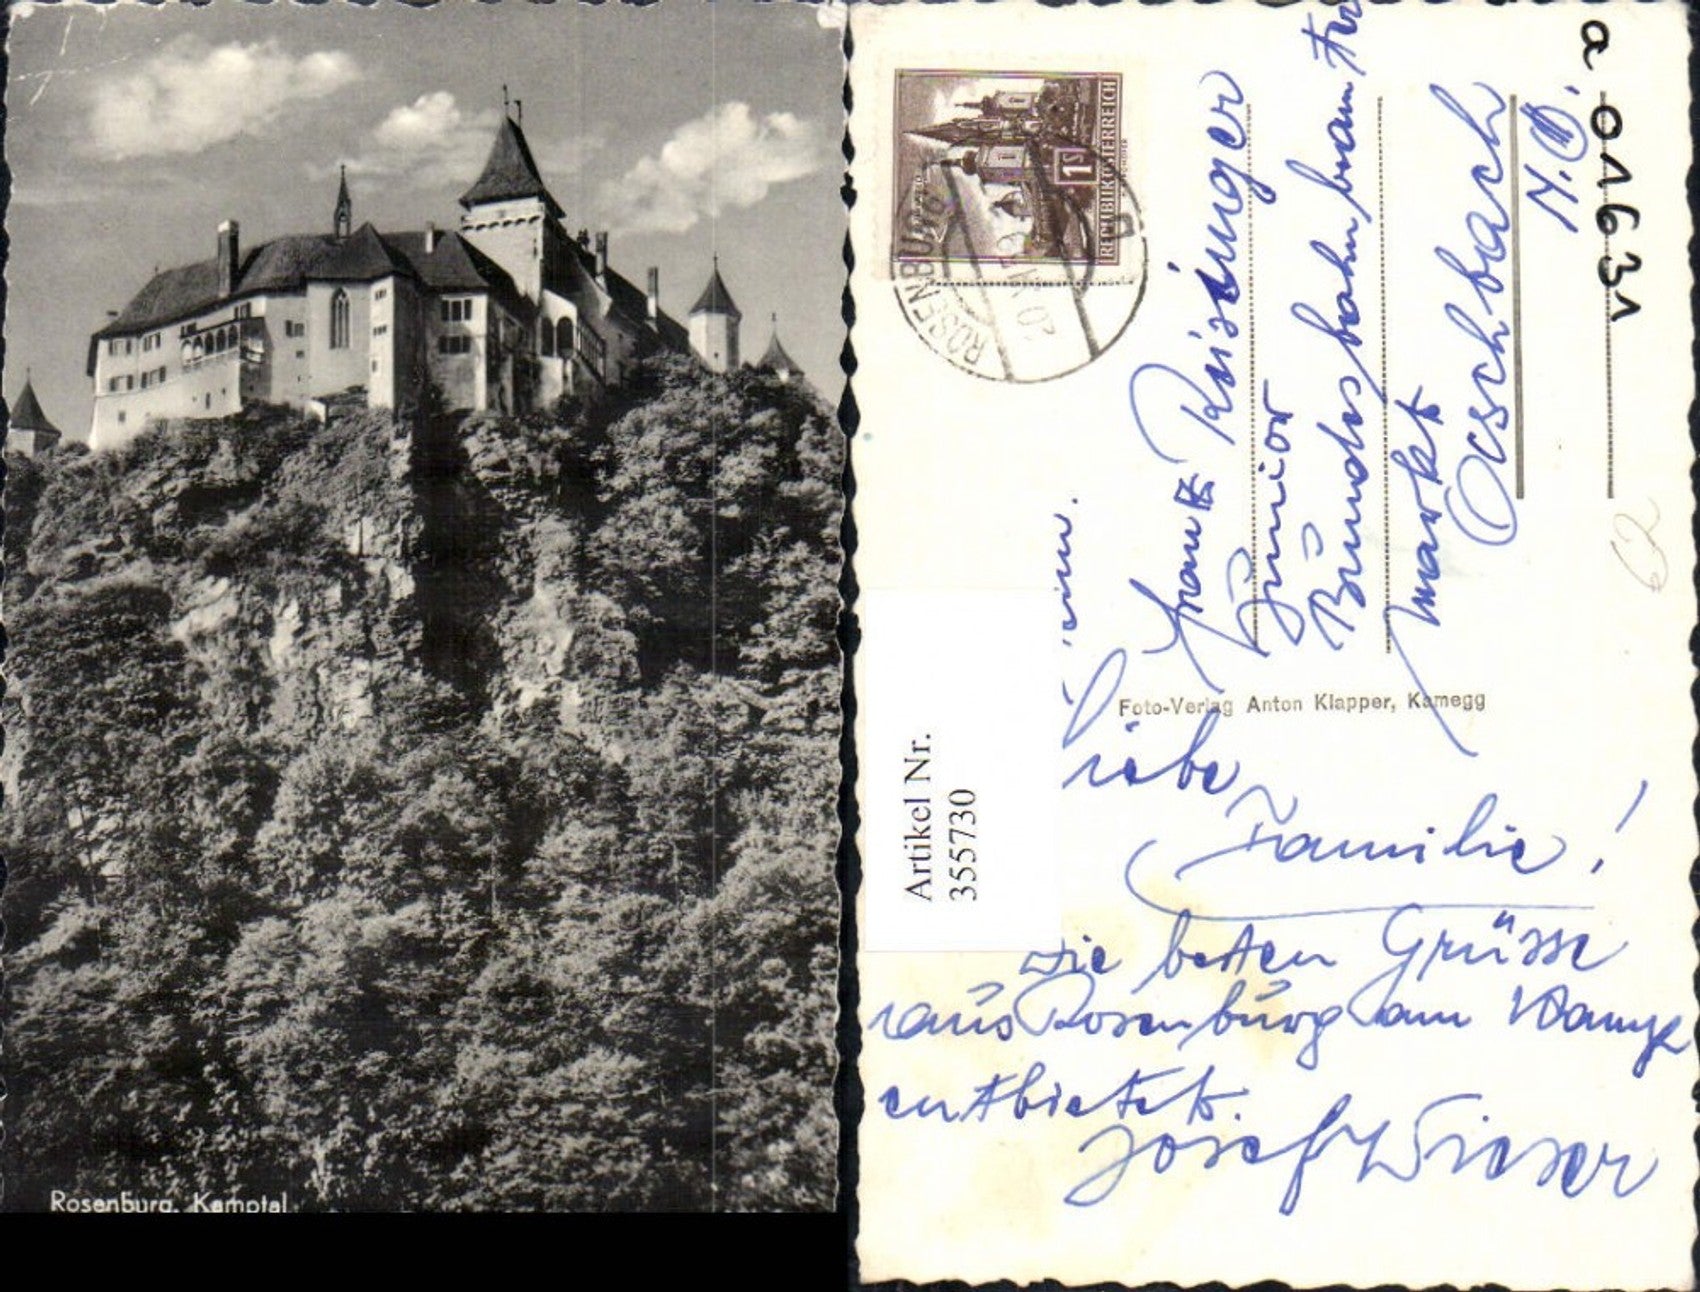 Rosenburg, Kamptal
REPUBLIK ÖSTERREICH
1S
ROSENBURG
a 01631
Franz Reisinger
Junior
Bundesbahnbeamter
markt
Aschbach
N.Ö.
62
Foto-Verlag Anton Klapper, Kamegg
Artikel Nr.
3557730
Liebe
Familie!
Die besten Grüsse
aus Rosenburg am Kamp
entbietet.
Josef Wieser